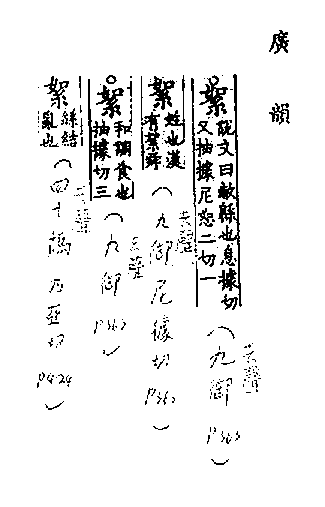 廣韻
絮 說文曰敝緜也息據切
又抽據尼恕二切一
(九御 P363)
去聲
絮 姓也漢
有絮舜
(九御 尼據切 P363)
去聲
絮 和調食也
抽據切三
(九御 P363)
去聲
絮 絲結
亂也
(四十禡 乃亞切 P424)
去聲